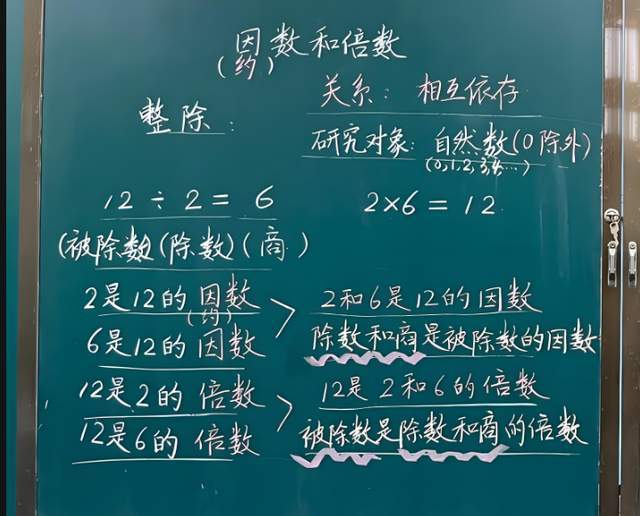 因数和倍数
(约)
关系：相互依存
整除：
研究对象：自然数(0除外)
(0,1,2,3,4…)
12÷2=6
2×6=12
(被除数)(除数)(商)
2是12的因数
(约)
6是12的因数
2和6是12的因数
除数和商是被除数的因数
12是2的倍数
12是6的倍数
12是2和6的倍数
被除数是除数和商的倍数